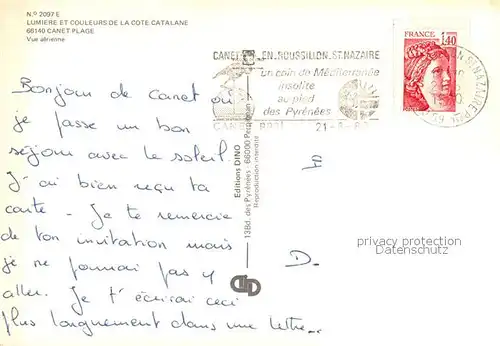 N.º 2097 E
LUMIERE ET COULEURS DE LA COTE CATALANE
66140 CANET PLAGE
Vue aérienne
CANET EN ROUSSILLON ST NAZAIRE
un coin de Méditerranée
insolite
au pied
des Pyrénées
FRANCE
1,40
Editions DINO
13Bd. des Pyrénées - 66000 Perpignan
Reproduction interdite
Bonjour de Canet où
je passe un bon
séjour avec le soleil.
J'ai bien reçu ta
carte - Je te remercie
de ton invitation mais
je ne pourrai pas y
aller. Je t'écrirai ceci
plus longuement dans une lettre..
D.
privacy protection